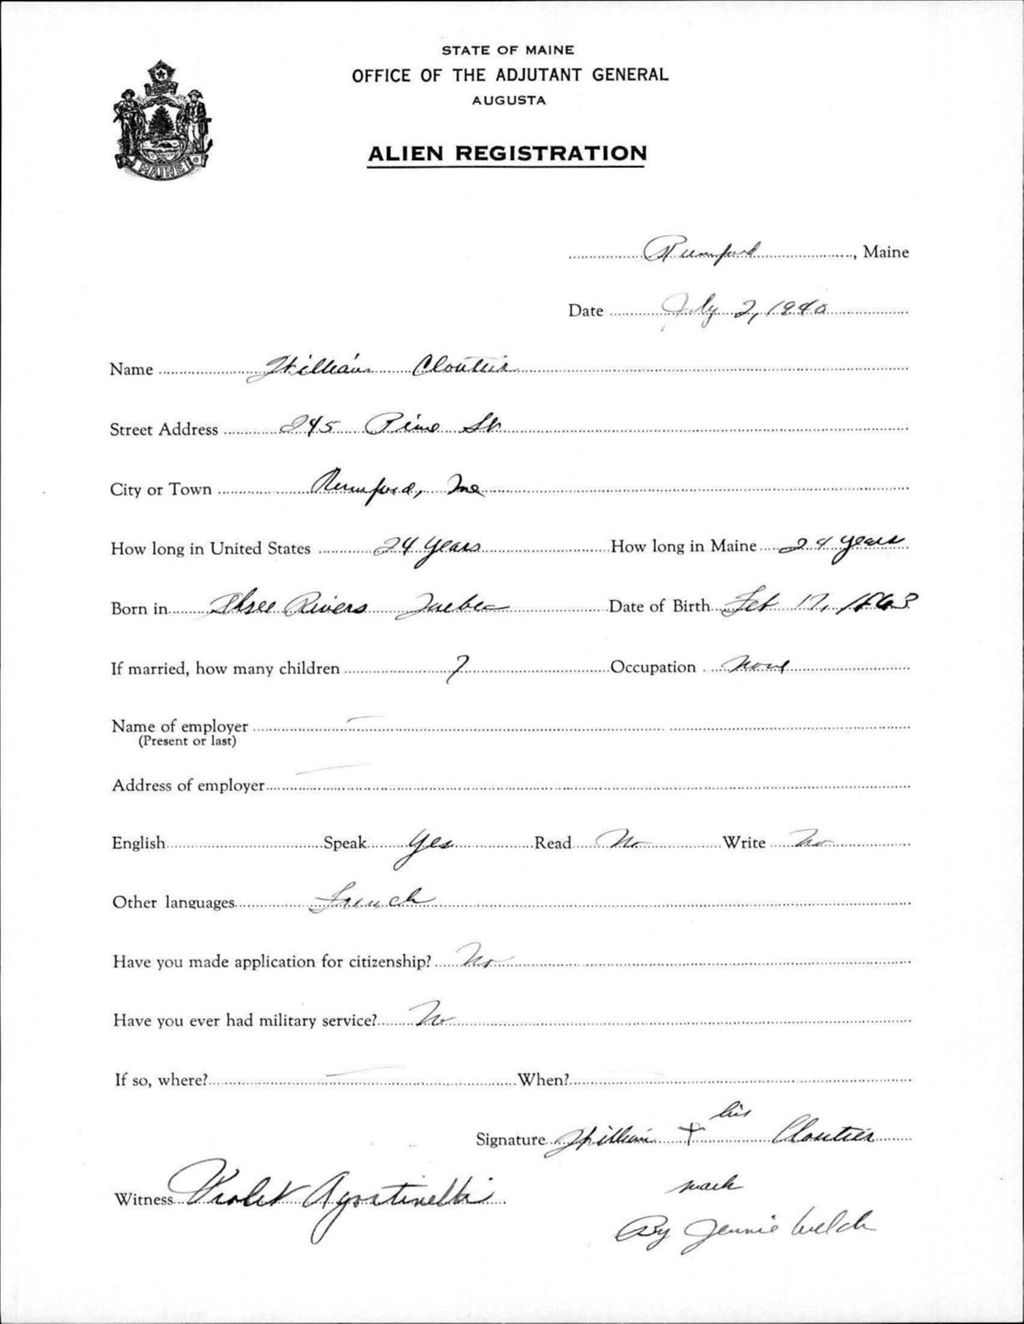 STATE OF MAINE
OFFICE OF THE ADJUTANT GENERAL
AUGUSTA
MAINE
ALIEN REGISTRATION
Rumford, Maine
Date July 2, 1940
Name William Cloutier
Street Address 245 Pine St
City or Town Rumford, Me
How long in United States 24 years How long in Maine 24 years
Born in Three Rivers Quebec Date of Birth Feb 17, 1863
If married, how many children 7 Occupation None
Name of employer —
(Present or last)
Address of employer —
English Speak Yes Read No Write No
Other languages French
Have you made application for citizenship? No
Have you ever had military service? No
If so, where? — When?
his
Signature William + Cloutier
mark
Witness Violet Agostinelli
By Jennie Welch